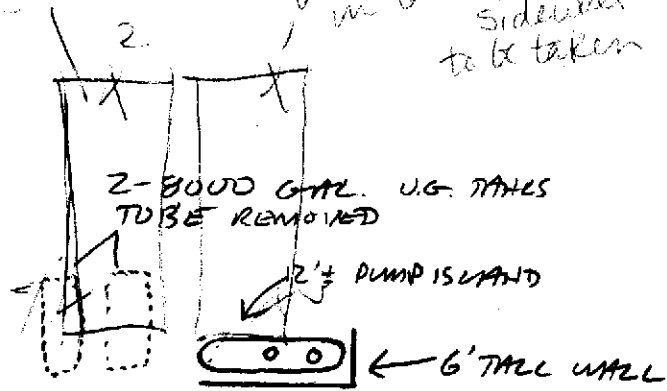 2.
sidewalk
to be taken
2-8000 GAL. U.G. TANKS
TO BE REMOVED
12'± PUMP ISLAND
6' TALL WALL